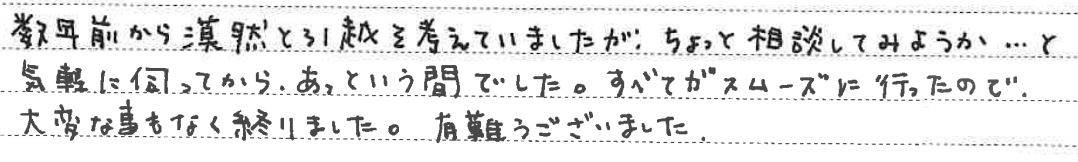 数年前から漠然と引越を考えていましたが、ちょっと相談してみようか…と
気軽に伺ってから、あっという間でした。すべてがスムーズに行ったので、
大変な事もなく終りました。有難うございました。